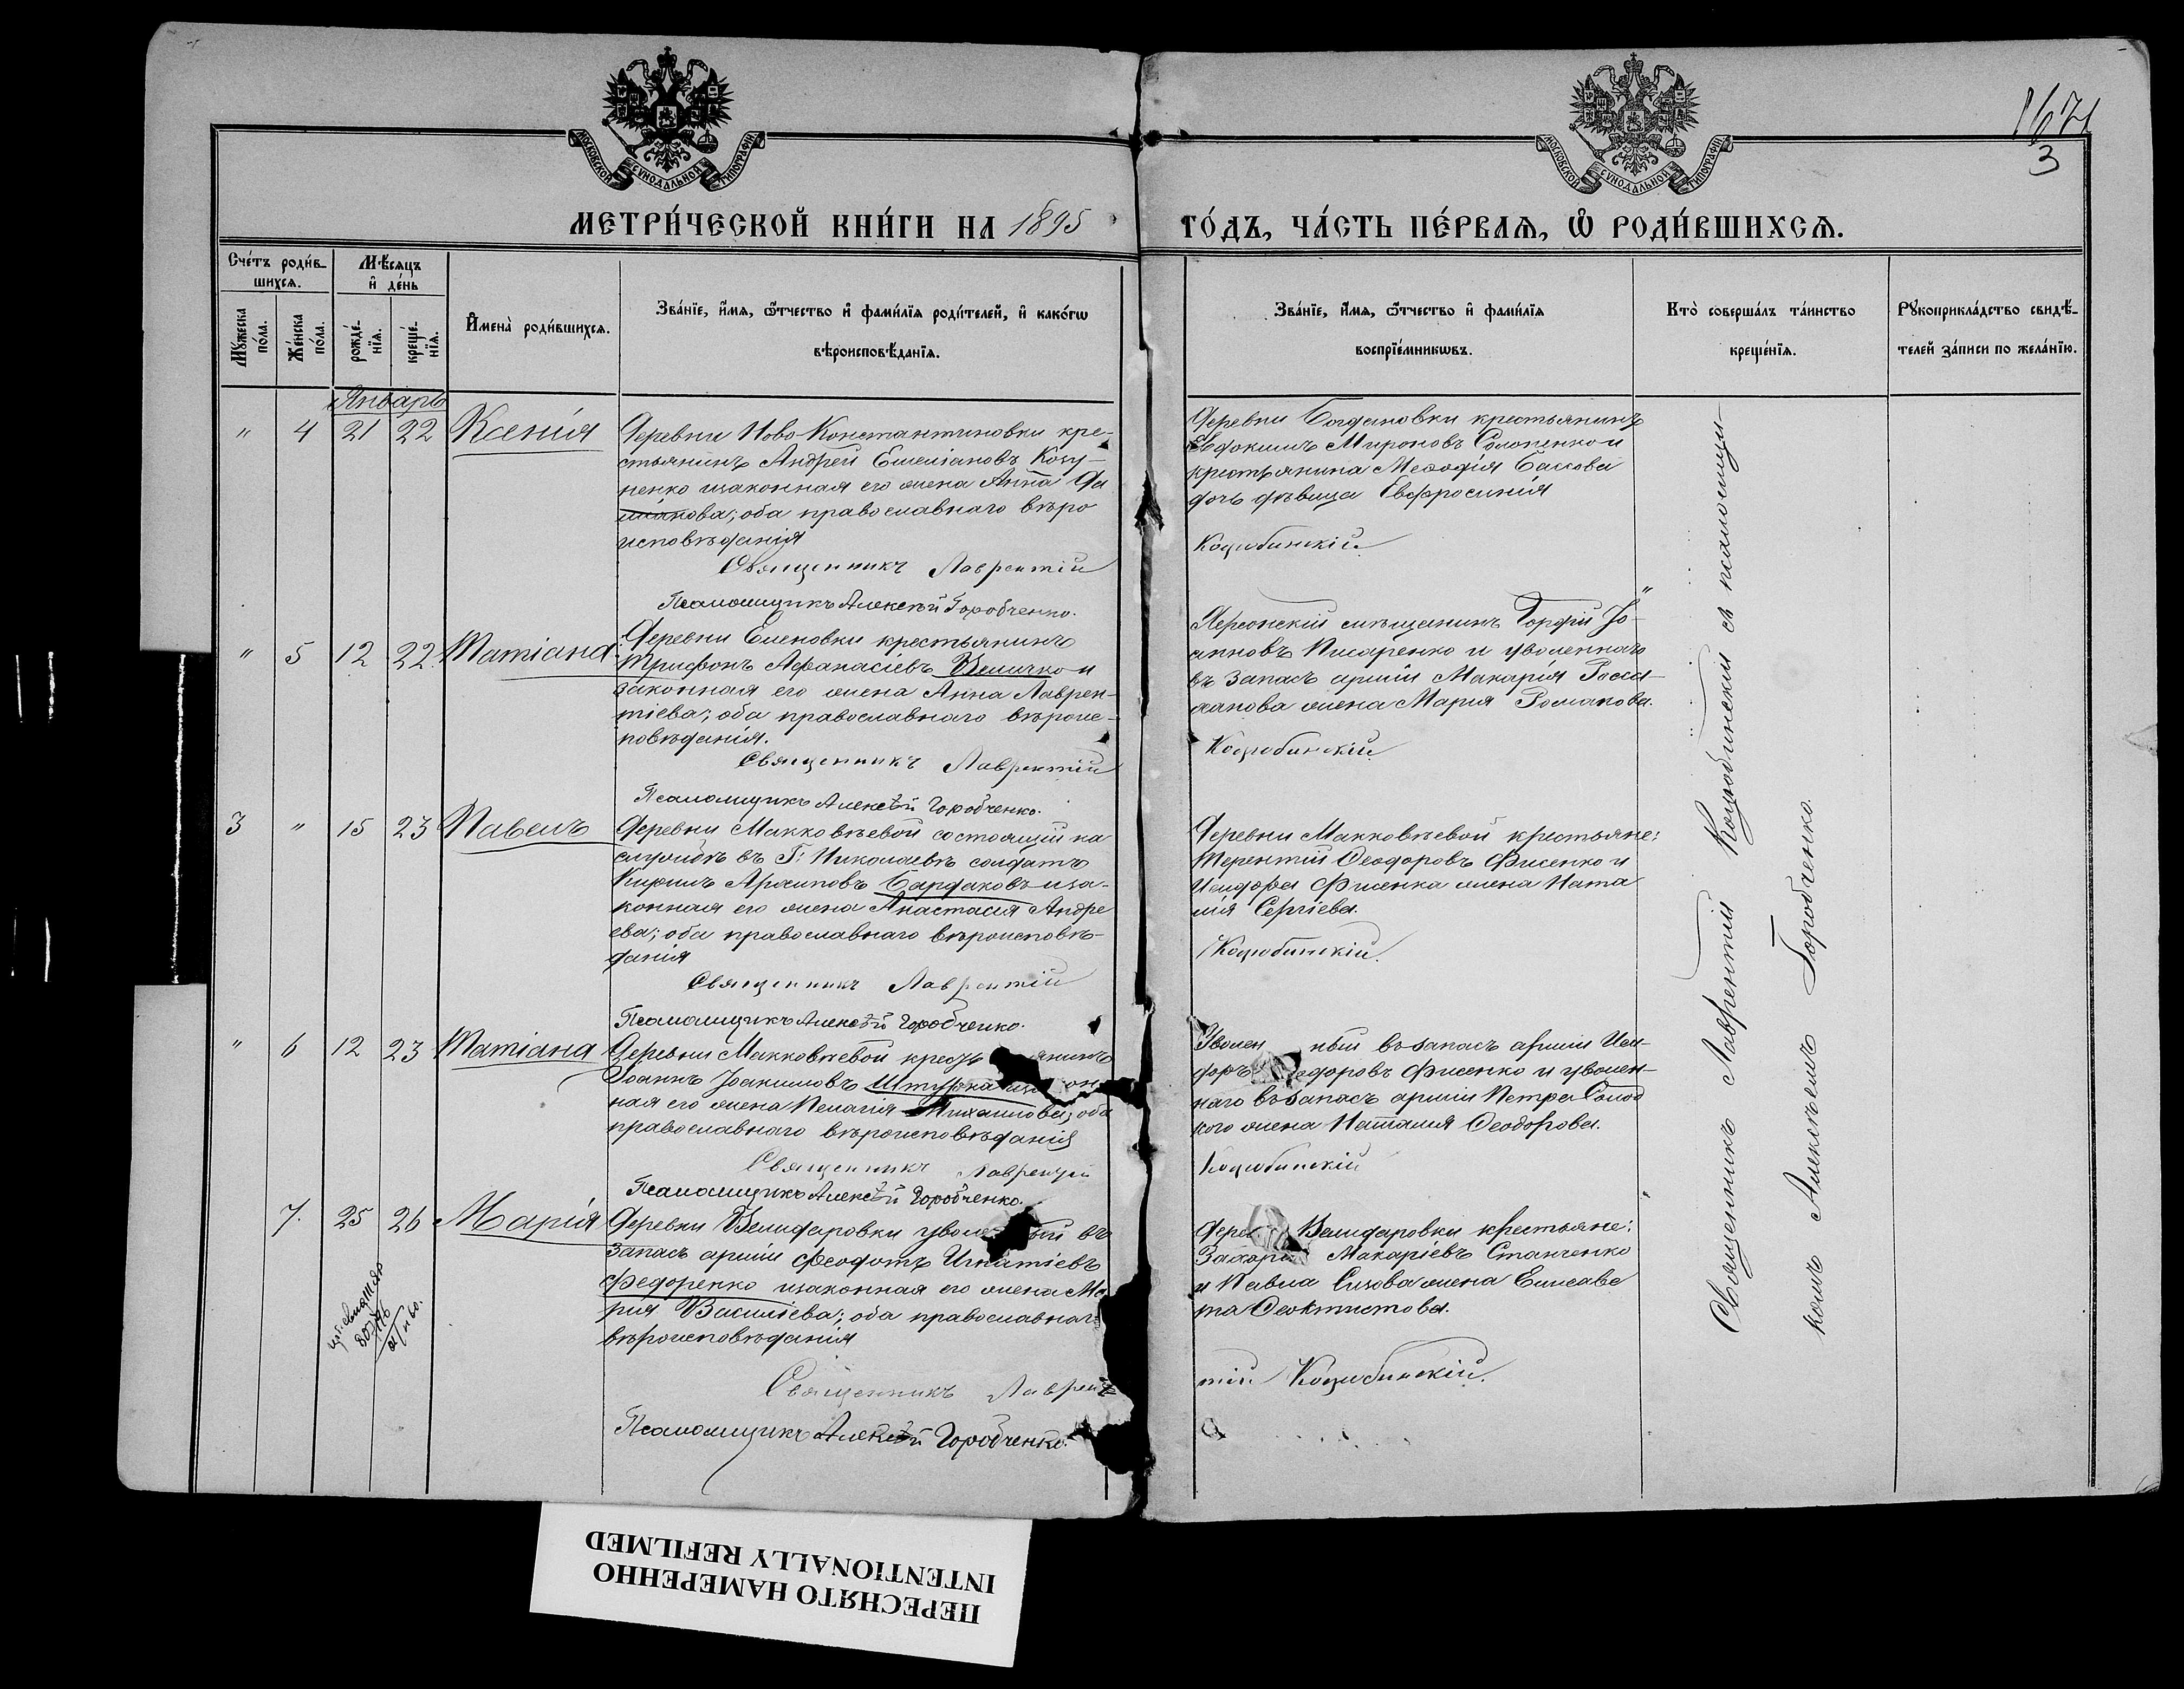 МОСКОВСКОЙ СѴНОДАЛЬНОЙ ТИПОГРАФІИ
МОСКОВСКОЙ СѴНОДАЛЬНОЙ ТИПОГРАФІИ
3
МЕТРИ́ЧЕСКОЙ КНИ́ГИ НА 1895
ГО́ДЪ, ЧА́СТЬ ПЕ́РВАѦ, Ѡ҆ РОДИ́ВШИХСѦ.
Сче́тъ роди́в-
шихсѧ.
Мѣ́сяцъ
и҆ де́нь
Мꙋ́жеска
по́ла.
Же́нска
по́ла.
рожде́-
нїѧ.
креще́-
нїѧ.
И҆мена̀ роди́вшихсѧ.
Зва́нїе, и҆́мѧ, ѻ҆́тчество и҆ фами́лїѧ роди́телей, и҆ како́гѡ
вѣроисповѣ́данїѧ.
Зва́нїе, и҆́мѧ, ѻ҆́тчество и҆ фами́лїѧ
воспрїе́мникѡвъ.
Кто̀ соверша́лъ та́инство
креще́нїѧ.
Рꙋкоприкла́дство свидѣ́-
телей за́писи по жела́нїю.
Январь
" 4 21 22 Ксенія
Деревни Ново-Константиновки кре-
стьянинъ Андрей Емеліановъ Козу-
ненко изаконная его жена Анна Да
міанова; оба православнаго вѣро
исповѣданія
Священникъ Лаврентій
Псаломщикъ Алексѣй Горобченко.
Деревни Богдановки крестьянинъ
Евдокимъ Мироновъ Солопенко и
крестьянина Меѳодія Бассова
дочь дѣвица Евфросинія
Коцюбинскій
" 5 12 22 Татіана
Деревни Еленовки крестьянинъ
Трифонъ Аѳанасіевъ Величко и
законная его жена Анна Лаврен-
тіева; оба православнаго вѣроис-
повѣданія.
Священникъ Лаврентій
Псаломщикъ Алексѣй Горобченко.
Херсонскій мѣщанинъ Гордій Іо-
анновъ Писаренко и уволеннаго
въ запасъ арміи Макарія
жена Марія Романова.
Коцюбинскій
3 " 15 23 Павелъ
Деревни Макковѣевой состоящій на
службѣ въ Г. Николаевѣ солдатъ
Кириллъ Архиповъ Бардаковъ иза-
конная его жена Анастасія Андре
ева; оба православнаго вѣроисповѣ-
данія
Священникъ Лаврентій
Псаломщикъ Алексѣй Горобченко.
Деревни Макковѣевой крестьяне:
Терентій Ѳеодоровъ Фисенко и
Исидора Фисенка жена Ната
лія Сергіева.
Коцюбинскій.
" 6 12 23 Татіана
Деревни Макковѣевой крест янинъ
Іоаннъ Іоакимовъ Штурка
ная его жена Пелагія Михаилова; оба
православнаго вѣроисповѣданія
Священникъ Лаврентій
Псаломщикъ Алексѣй Горобченко.
Уволен ный въ запасъ арміи Иси-
доръ едоровъ Фисенко и уволен-
наго въ запасъ арміи Петра Солод
кого жена Наталія Ѳеодорова.
Коцюбинскій
7. 25 26 Марія
Деревни Велидаровки уволе ный въ
запасъ арміи Феодотъ Игнатіевъ
Федоренко изаконная его жена Ма
рія Василіева; оба православнаго
вѣроисповѣданія
Священникъ Лаврен
Псаломщикъ Алексѣй Горобченко.
Дере Велидаровки крестьяне:
Захарій Макаріевъ Станченко
и Павла Сизова жена Елисаве
та Ѳеоктистова.
тій Коцюбинскій.
Священникъ Лаврентій Коцюбинскій съ псаломщи-
комъ Алексѣемъ Горобченко.
ПЕРЕСНЯТО НАМЕРЕННО
INTENTIONALLY REFILMED